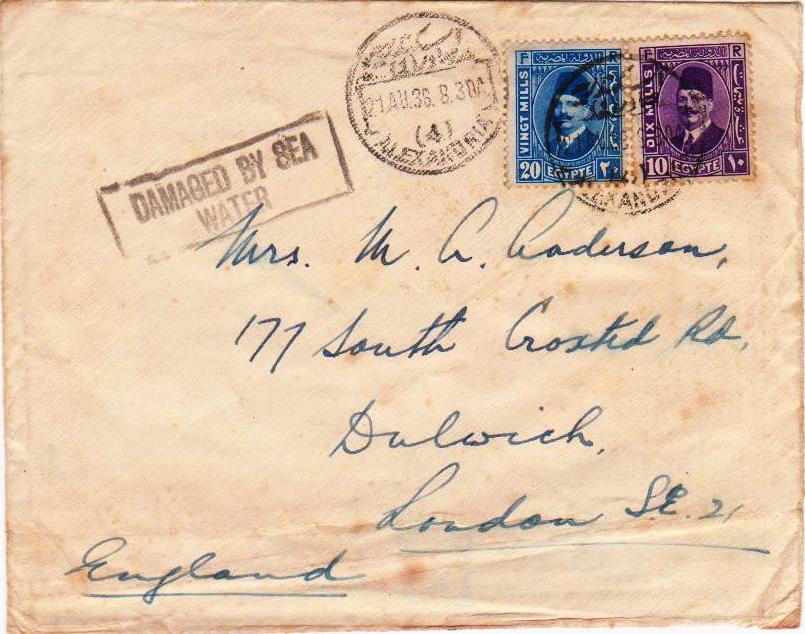 DAMAGED BY SEA
WATER
21 AU. 36. 8.30A
(4)
ALEXANDRIA
F R
الدولة المصرية
VINGT MILLS
20 ٢٠
EGYPTE
F R
الدولة المصرية
DIX MILLS
10 ١٠
EGYPTE
Mrs. M. A. Anderson,
177 South Croxted Rd,
Dulwich,
London S.E. 21
England